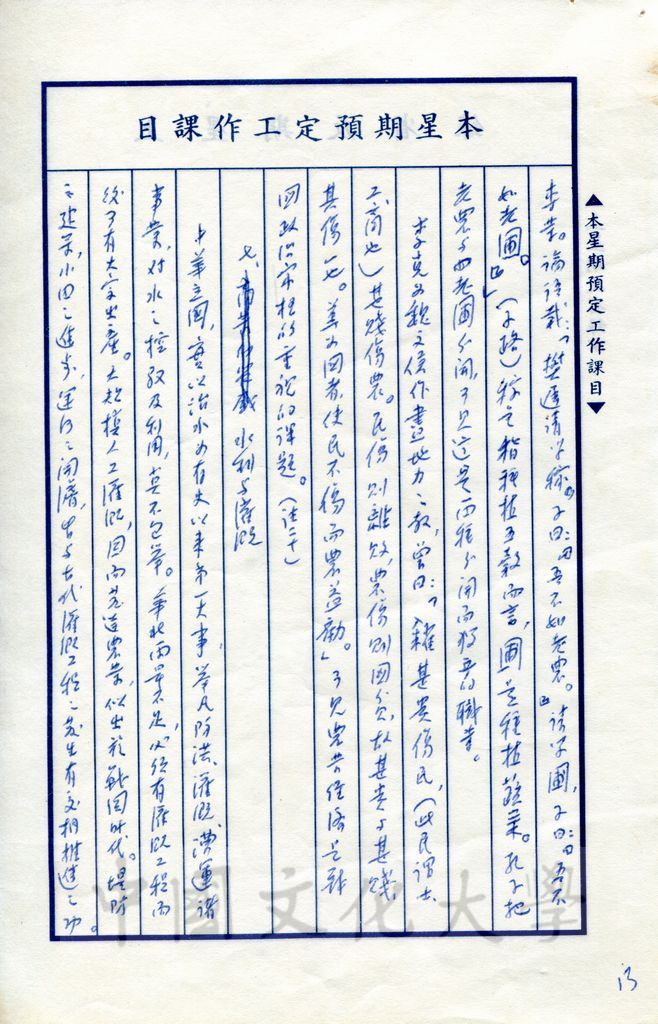 本星期預定工作課目
▲本星期預定工作課目▼
事業。論語載：「樊遲請學稼。子曰：『吾不如老農。』請學圃，子曰：『吾不
如老圃。』」（子路）稼是指種植五穀而言，圃是種植蔬菜。孔子把
老農與老圃分開，可見這是兩種分開而獨立的職業。
李克為魏文侯作盡地力之教，曾曰：「糴甚貴傷民，（此民謂士
工商也）甚賤傷農。民傷則離散，農傷則國貧，故甚貴與甚賤，
其傷一也。善為國者，使民不傷而農益勸。」可見農業經濟是戰
國政治家極的重視的課題。（註二十）
七、水利與灌溉
中華立國，實以治水為有史以來第一大事，舉凡防洪、灌溉、漕運諸
事業，對水之控馭及利用，莫不包舉。華北雨量不足，必須有灌溉工程而
後可有大宗出產。大規模人工灌溉，因而甚適農業，似出於戰國時代。堤防
之建築，小田之進步，運河之開濬，皆與古代灌溉工程之發生有交相推進之功。
中國文化大學
13